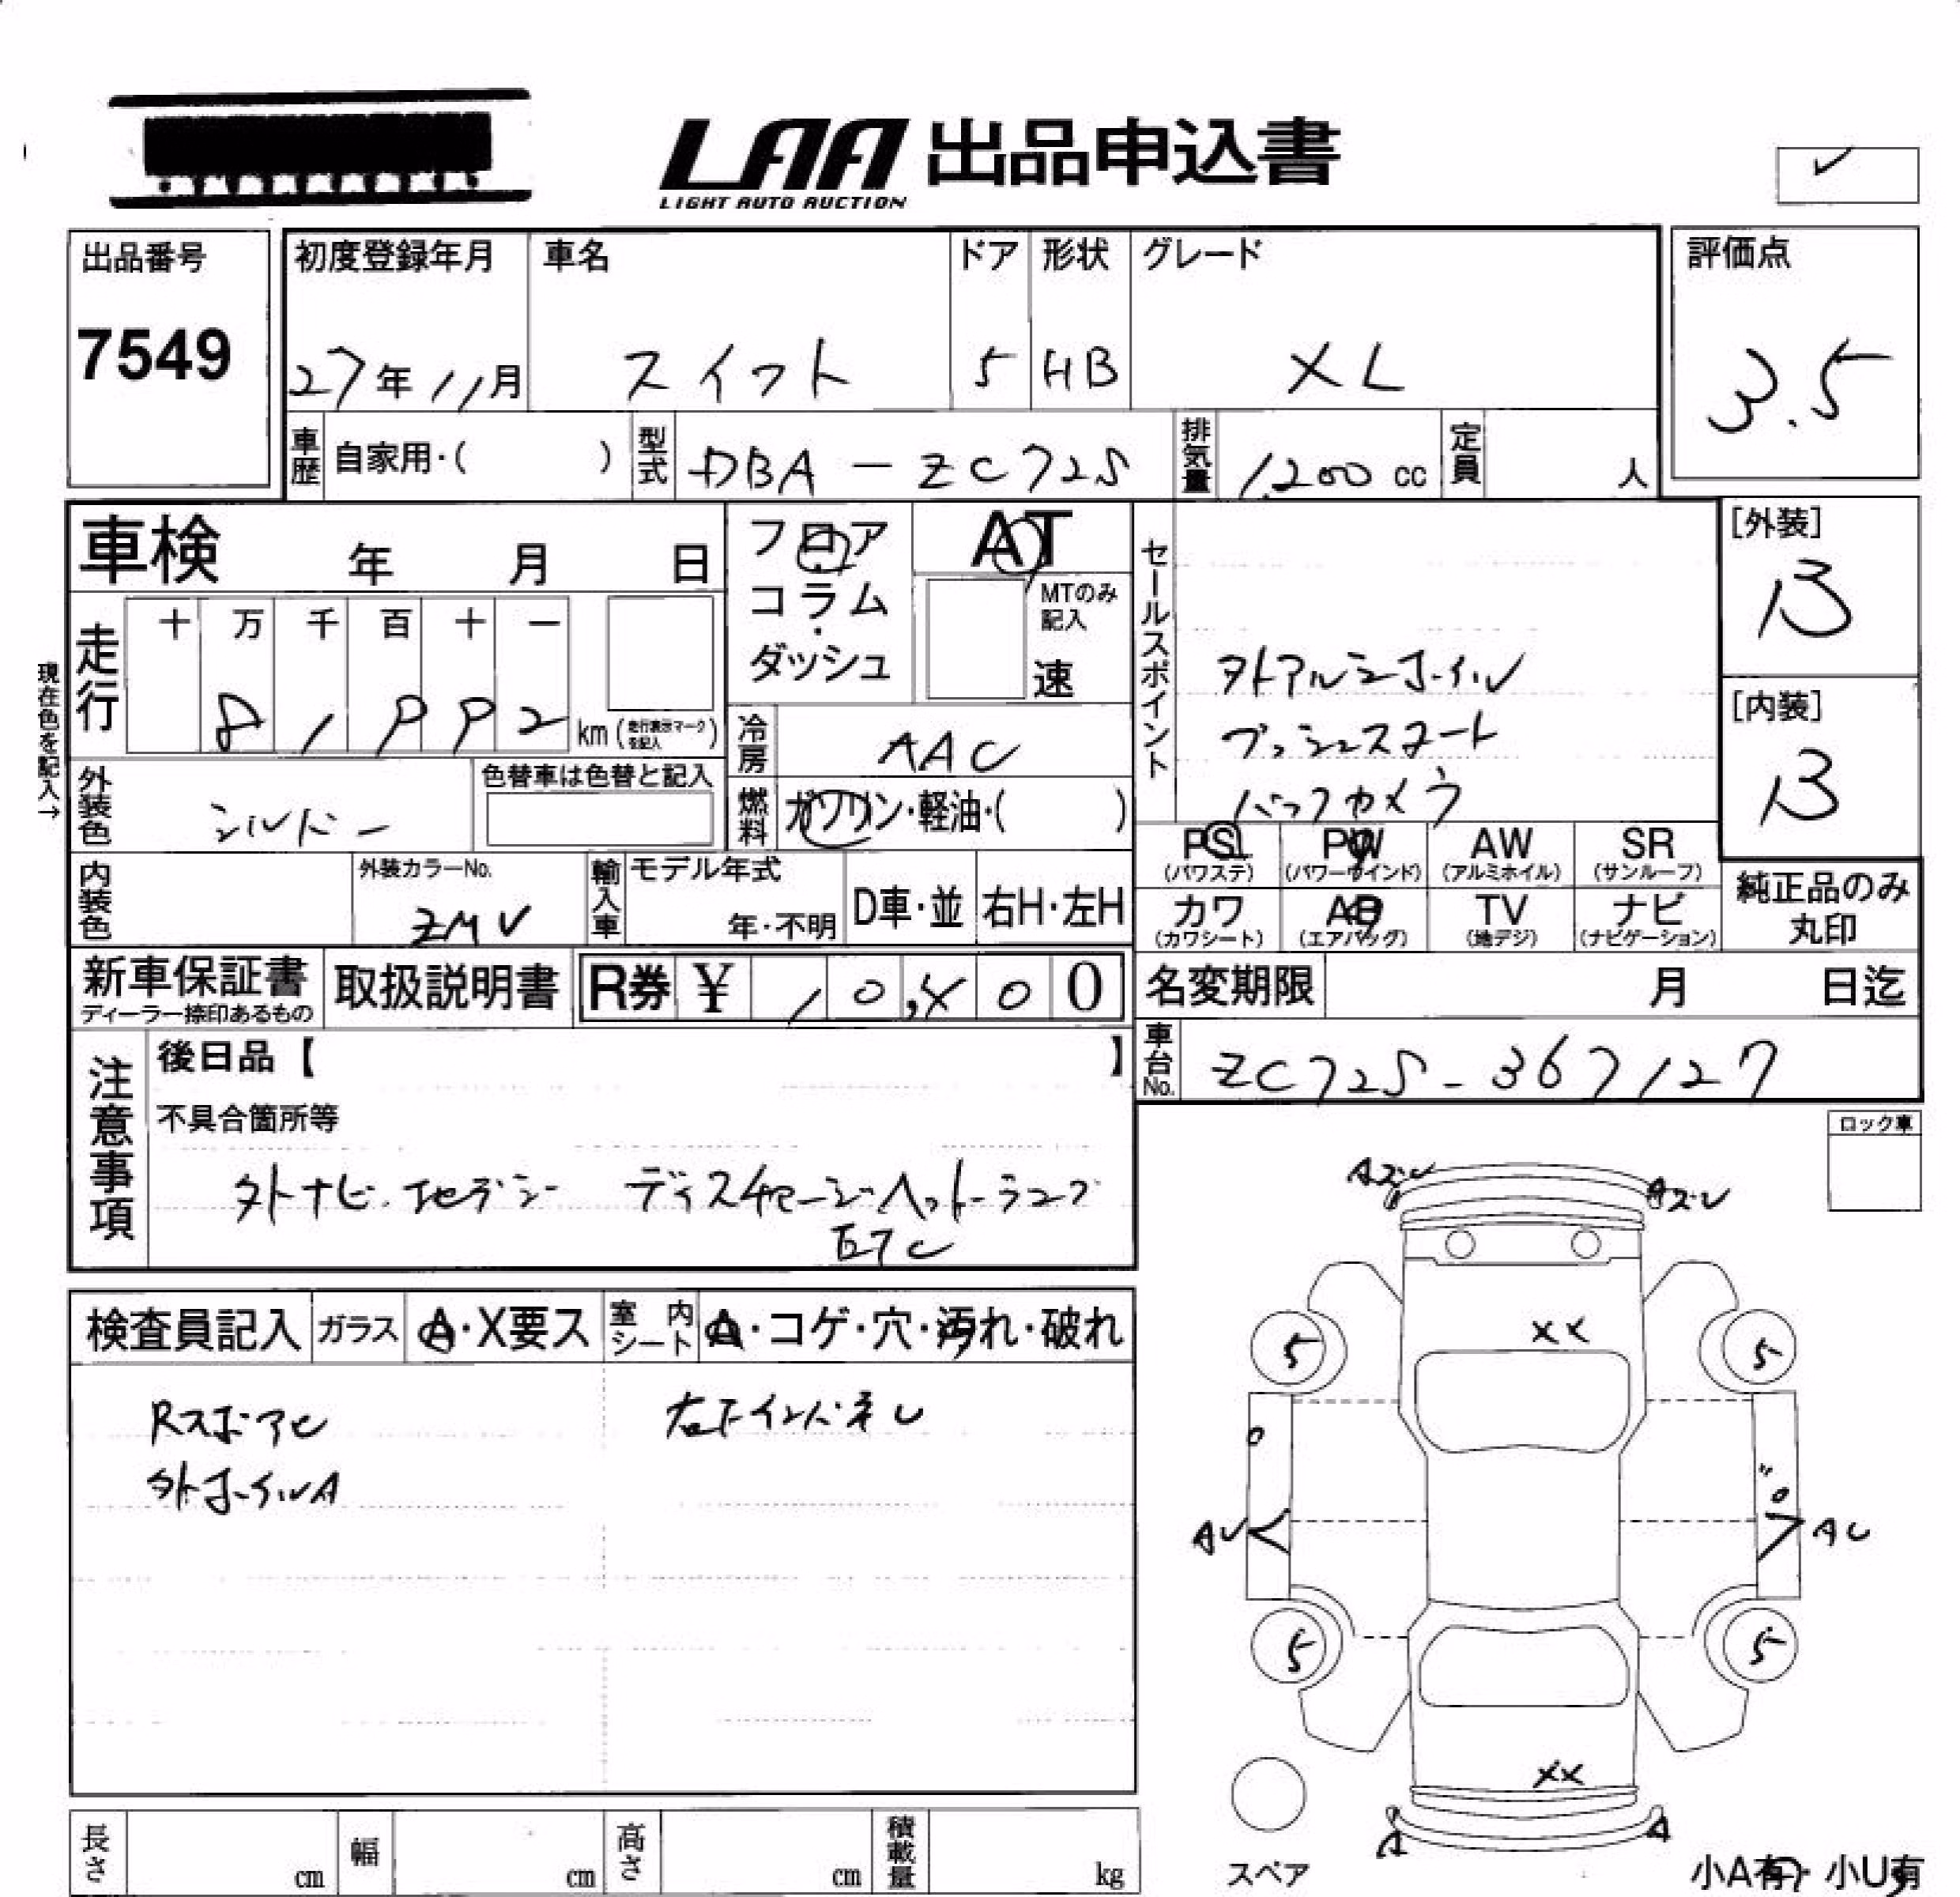 LAA 出品申込書
LIGHT AUTO AUCTION
出品番号
7549
初度登録年月
27年11月
車名
スイフト
ドア
5
形状
HB
グレード
XL
評価点
3.5
車歴 自家用・( )
型式 DBA-ZC72S
排気量 1,200 cc
定員 人
車検 年 月 日
フロア
コラム
・
ダッシュ
AT
MTのみ記入
速
セールスポイント
外アルミホイル
プッシュスタート
バックカメラ
[外装]
B
[内装]
B
現在色を記入→
走行
十 万 千 百 十 一
8 1 9 9 2 km(走行表示マークを記入)
冷房 AAC
外装色 シルバー
色替車は色替と記入
燃料 ガソリン・軽油・( )
PS (パワステ)
PW (パワーウインド)
AW (アルミホイル)
SR (サンルーフ)
内装色
外装カラーNo.
ZMV
輸入車 モデル年式
年・不明
D車・並
右H・左H
カワ (カワシート)
AB (エアバッグ)
TV (地デジ)
ナビ (ナビゲーション)
純正品のみ
丸印
新車保証書
ディーラー捺印あるもの
取扱説明書
R券 ¥ 10,400
名変期限 月 日迄
注意事項
後日品【 】
不具合箇所等
外ナビ.地デジ ディスチャージヘッドランプ
ETC
車台No. ZC72S-367127
ロック車
検査員記入
ガラス A・X要ス
室内シート A・コゲ・穴・汚れ・破れ
外ホイルA
Aズレ
Aズレ
XX
5
5
AU
AU
5
5
XX
A
A
スペア
小A有・小U有
長さ cm
幅 cm
高さ cm
積載量 kg